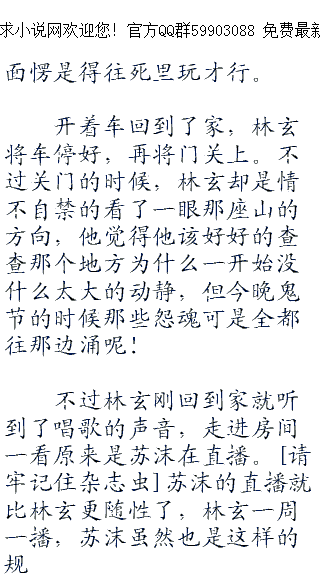 求小说网欢迎您! 官方QQ群59903088 免费最新
面愣是得往死里玩才行。
开着车回到了家，林玄
将车停好，再将门关上。不
过关门的时候，林玄却是情
不自禁的看了一眼那座山的
方向，他觉得他该好好的查
查那个地方为什么一开始没
什么太大的动静，但今晚鬼
节的时候那些怨魂可是全都
往那边涌呢！
不过林玄刚回到家就听
到了唱歌的声音，走进房间
一看原来是苏沫在直播。[请
牢记住杂志虫]苏沫的直播就
比林玄更随性了，林玄一周
一播，苏沫虽然也是这样的
规